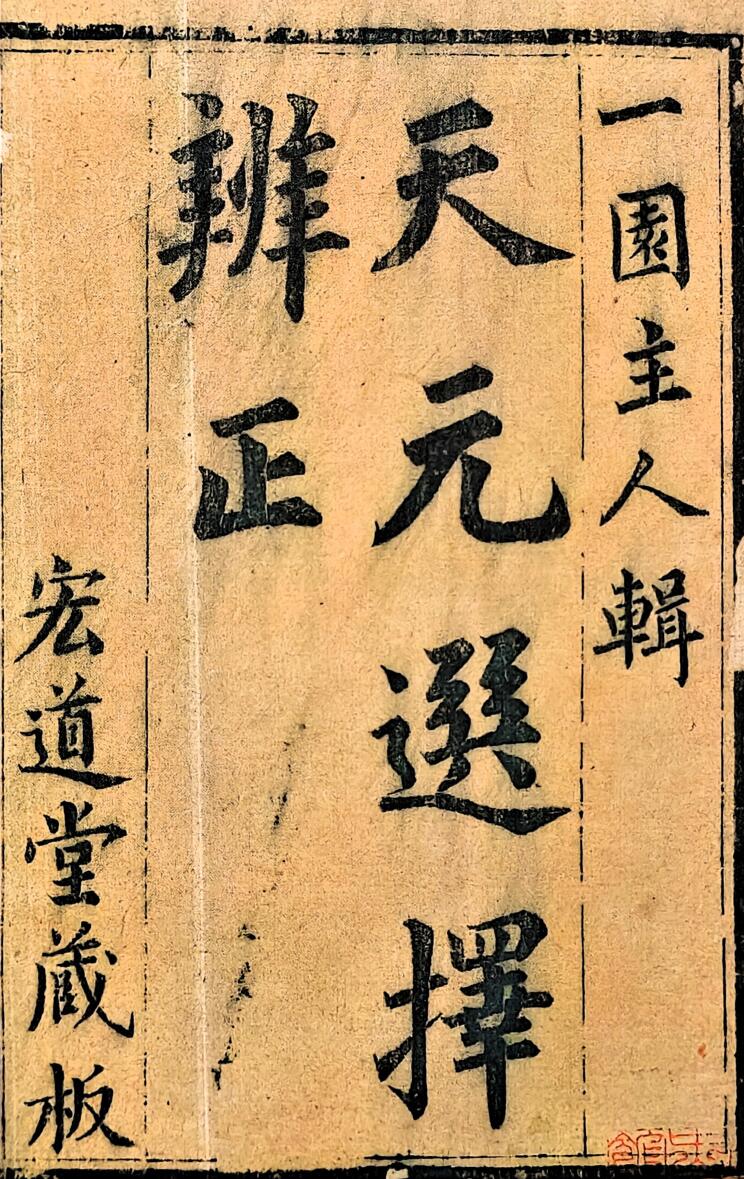 一園主人輯
天元選擇
辨正
宏道堂蔵板